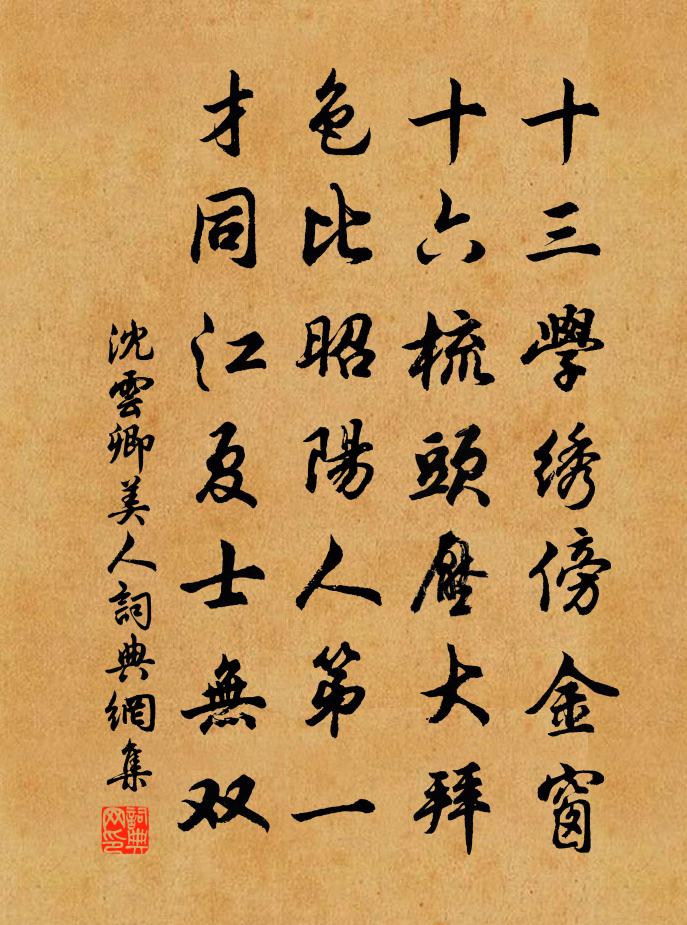 十三學綉傍金窗
十六梳頭壓大拜
色比昭陽人第一
才同江夏士無双
沈雲卿美人詞典網集
詞典网印